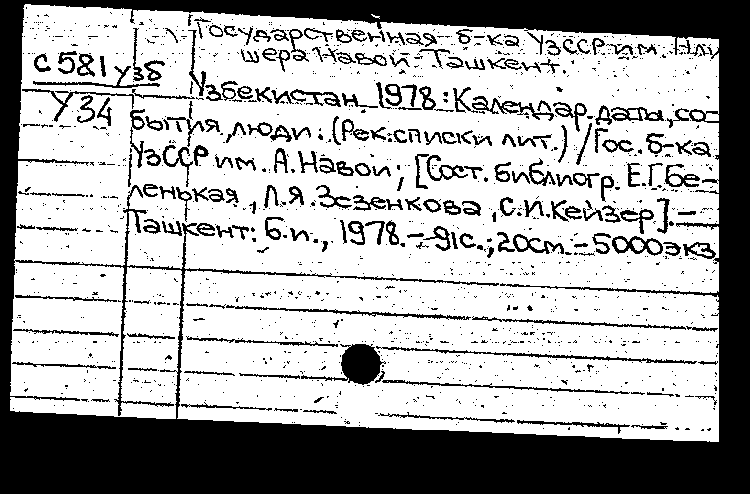 Государственная б-ка УзССР им. Али
шера Навои - Ташкент.
С581уз6
У34
Узбекистан, 1978: Календар. даты, со-
бытия, люди. (Рек. списки лит.) / Гос. б-ка
УзССР им. А. Навои; [Сост. библиогр. Е.Г. Бе-
ленькая, Л.Я. Зезенкова, С.И. Кейзер]. -
Ташкент: Б.и., 1978. - 91с.; 20см. - 5000экз.